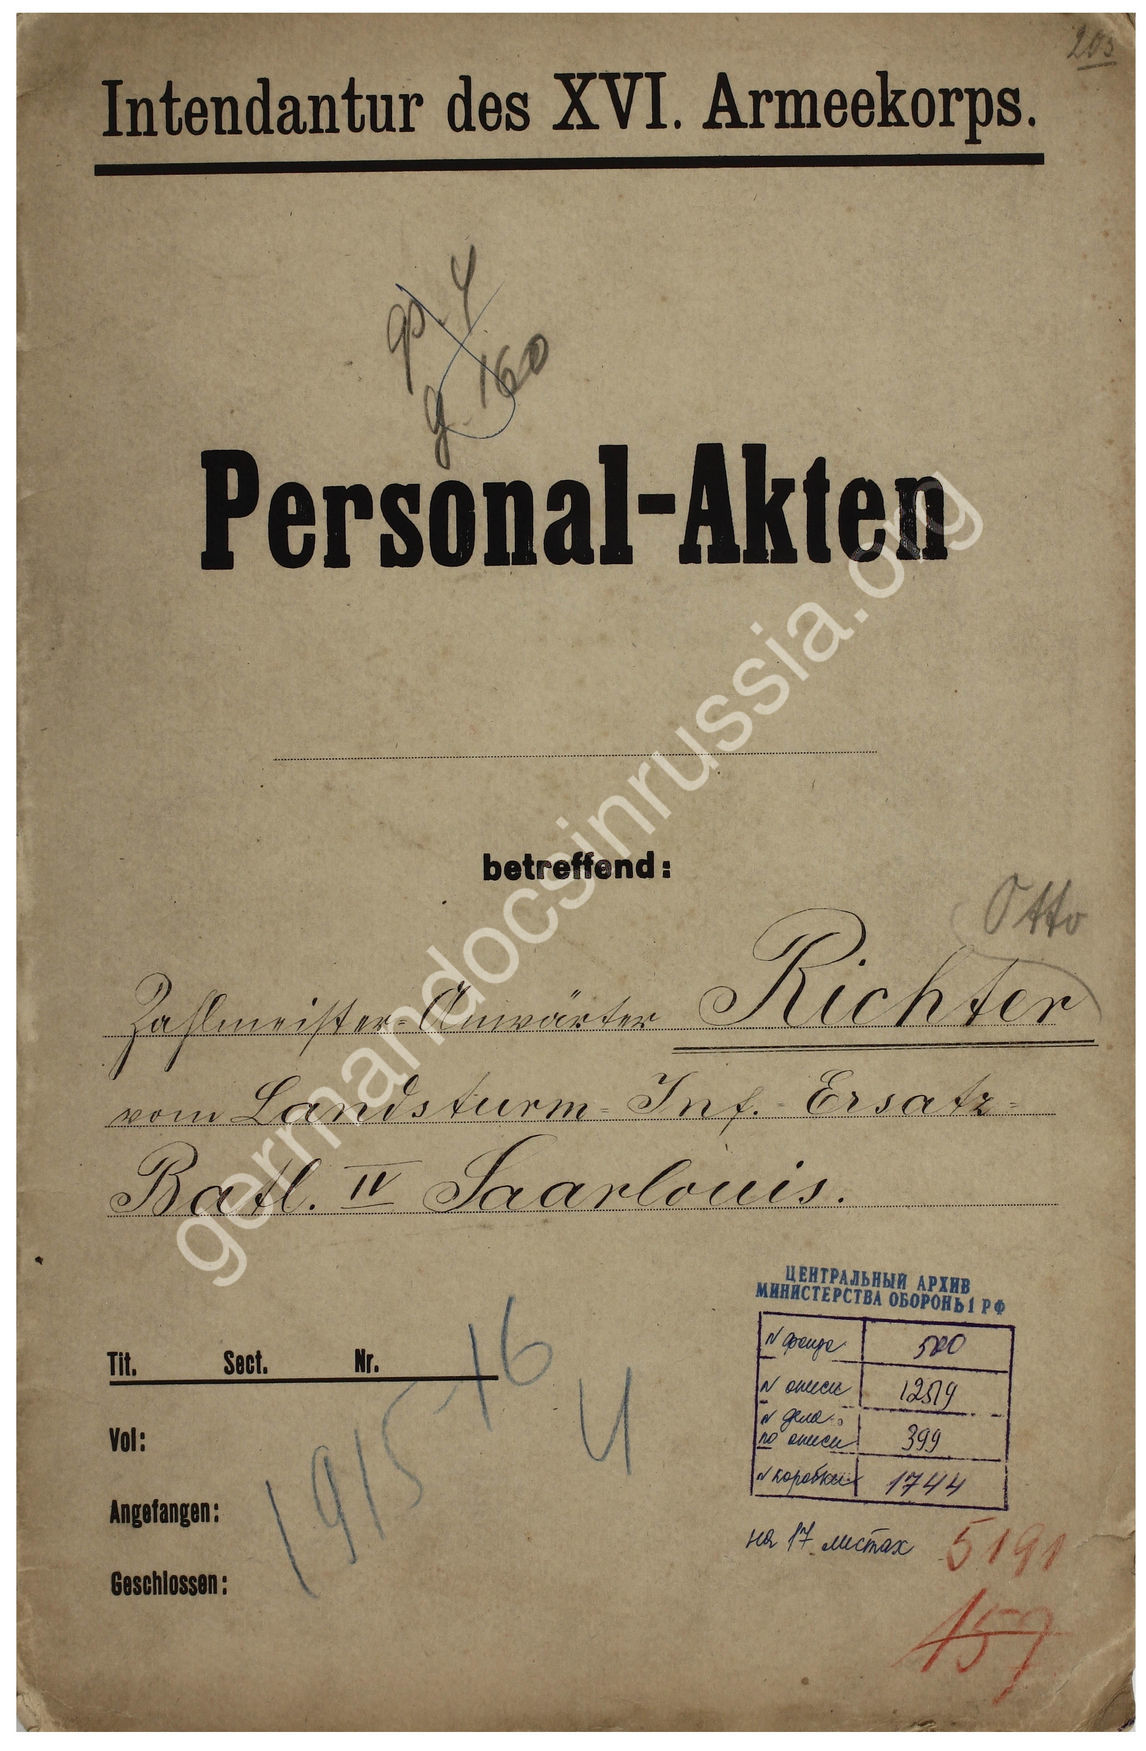 203
Intendantur des XVI. Armeekorps.
ф. 4
д. 160
Personal-Akten
betreffend:
Otto
Zahlmeister-Anwärter Richter
vom Landsturm-Inf.-Ersatz-
Batl. IV Saarlouis.
ЦЕНТРАЛЬНЫЙ АРХИВ
МИНИСТЕРСТВА ОБОРОНЫ РФ
N фонда 500
N описи 12519
N дела
по описи 399
N коробки 1744
на 17 листах
5191
159
Tit. Sect. Nr.
Vol:
Angefangen:
Geschlossen:
1915-16
4
germandocsinrussia.org